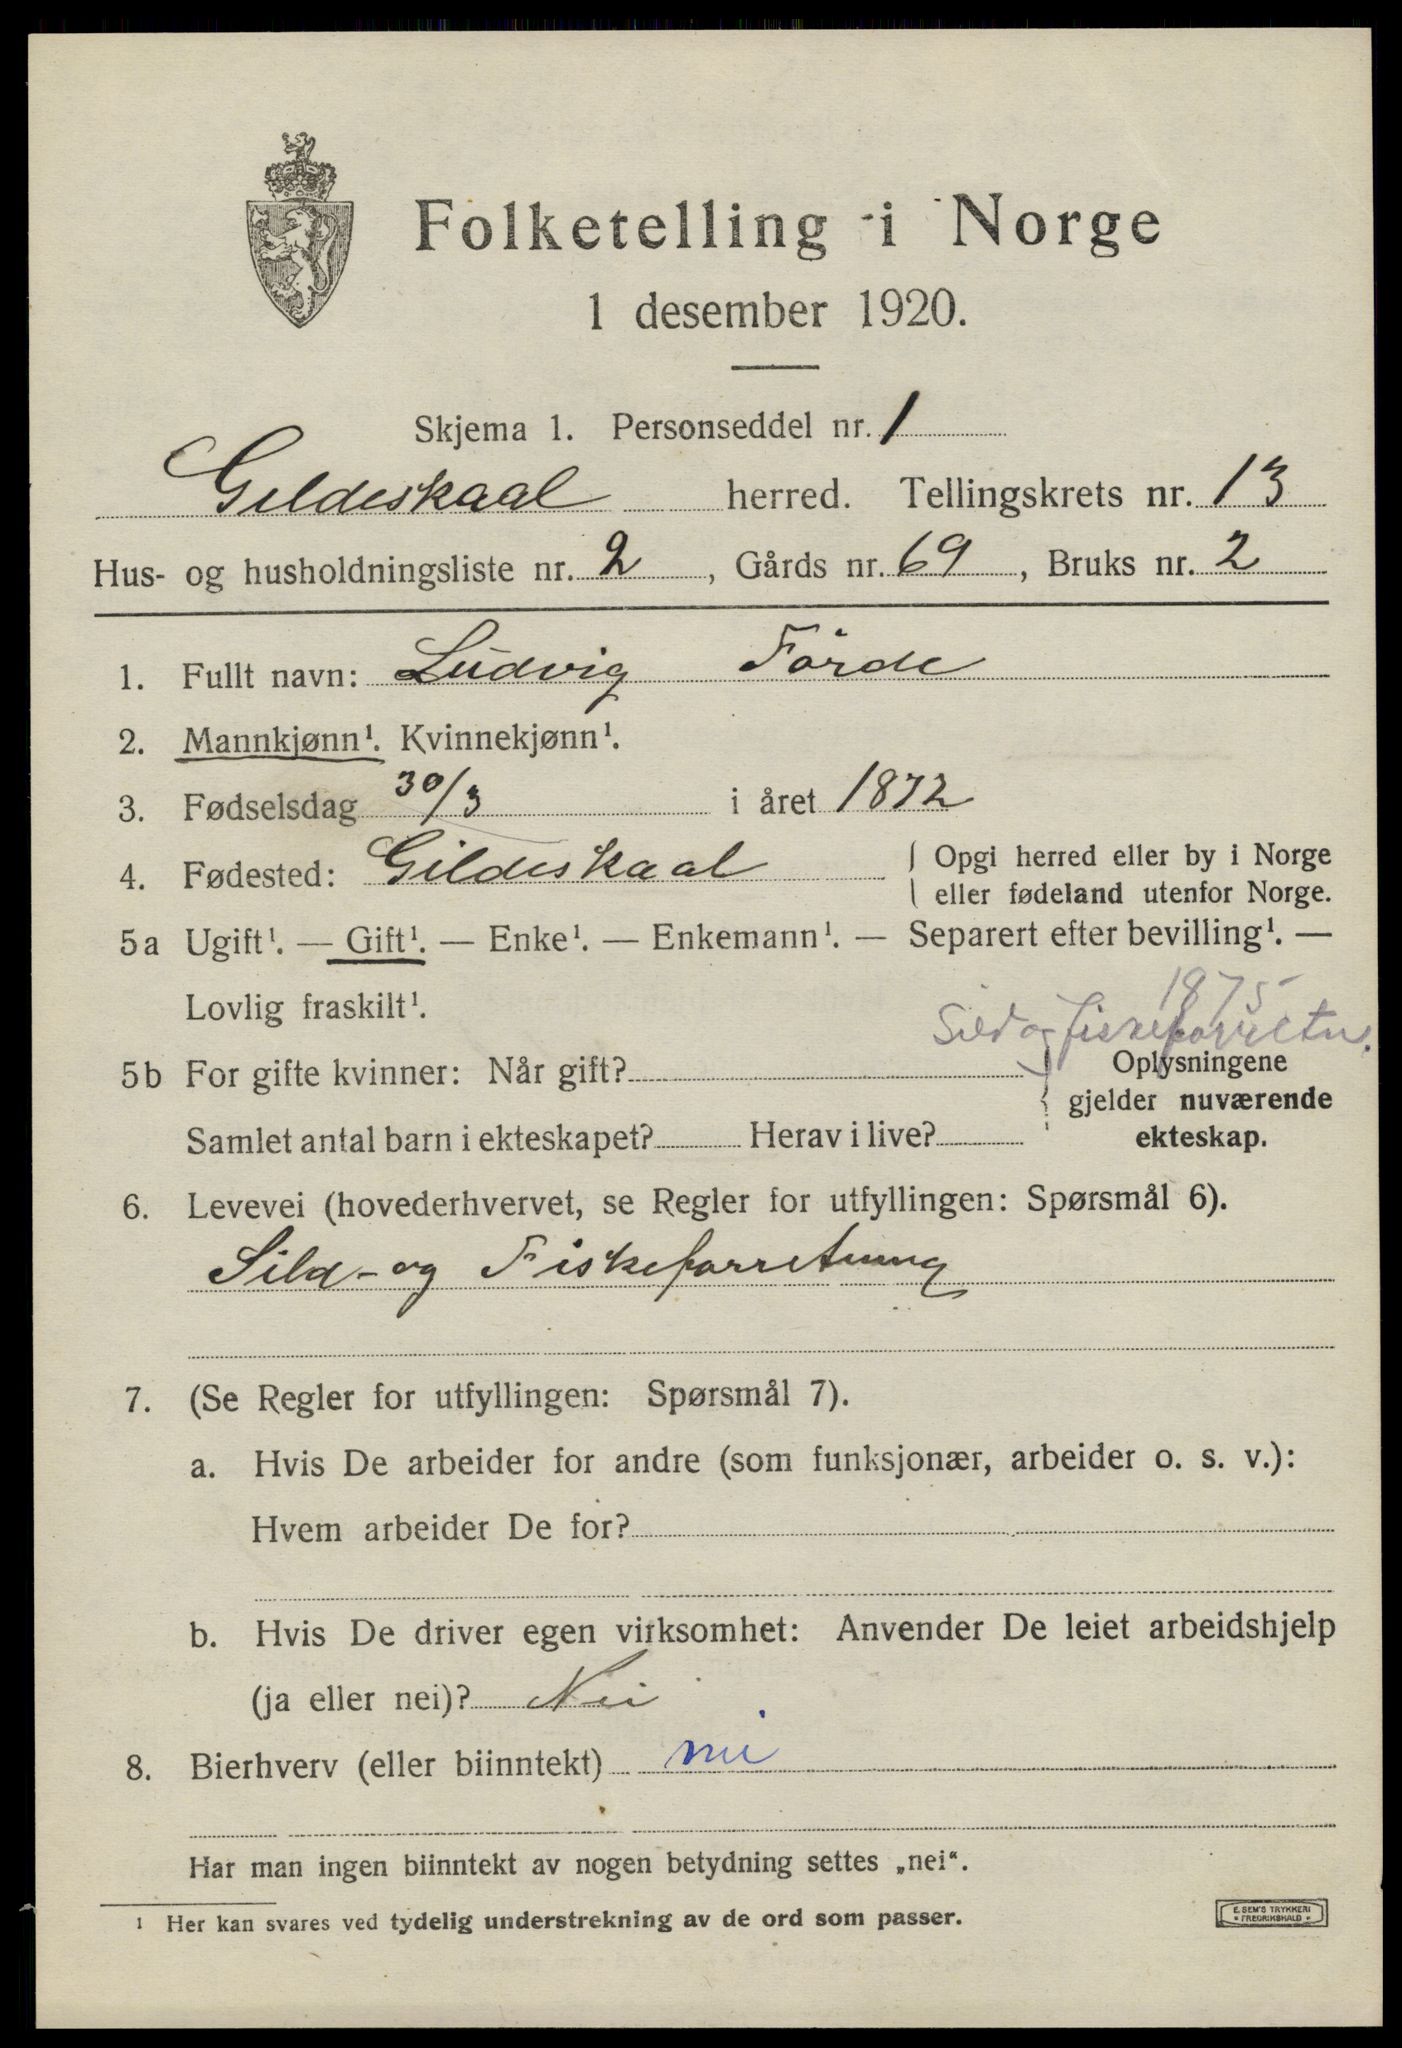 Folketelling i Norge
1 desember 1920.
Skjema 1. Personseddel nr. 1
Gildeskaal herred. Tellingskrets nr. 13
Hus- og husholdningsliste nr. 2, Gårds nr. 69, Bruks nr. 2
1. Fullt navn: Ludvig Förde
2. Mannkjønn¹. Kvinnekjønn¹.
3. Fødselsdag 30/3 i året 1872
4. Fødested: Gildeskaal { Opgi herred eller by i Norge
eller fødeland utenfor Norge.
5a Ugift¹. — Gift¹. — Enke¹. — Enkemann¹. — Separert efter bevilling¹. —
Lovlig fraskilt¹.
1875
Sild og fiskeforretn.
5b For gifte kvinner: Når gift? { Oplysningene
gjelder nuværende
Samlet antal barn i ekteskapet? Herav i live? ekteskap.
6. Levevei (hovederhvervet, se Regler for utfyllingen: Spørsmål 6).
Sild- og Fiskeforretning
7. (Se Regler for utfyllingen: Spørsmål 7).
a. Hvis De arbeider for andre (som funksjonær, arbeider o. s. v.):
Hvem arbeider De for?
b. Hvis De driver egen virksomhet: Anvender De leiet arbeidshjelp
(ja eller nei)? Nei
8. Bierhverv (eller biinntekt) nei
Har man ingen biinntekt av nogen betydning settes „nei“.
¹ Her kan svares ved tydelig understrekning av de ord som passer.
E. SEM'S TRYKKERI
* FREDRIKSHALD *